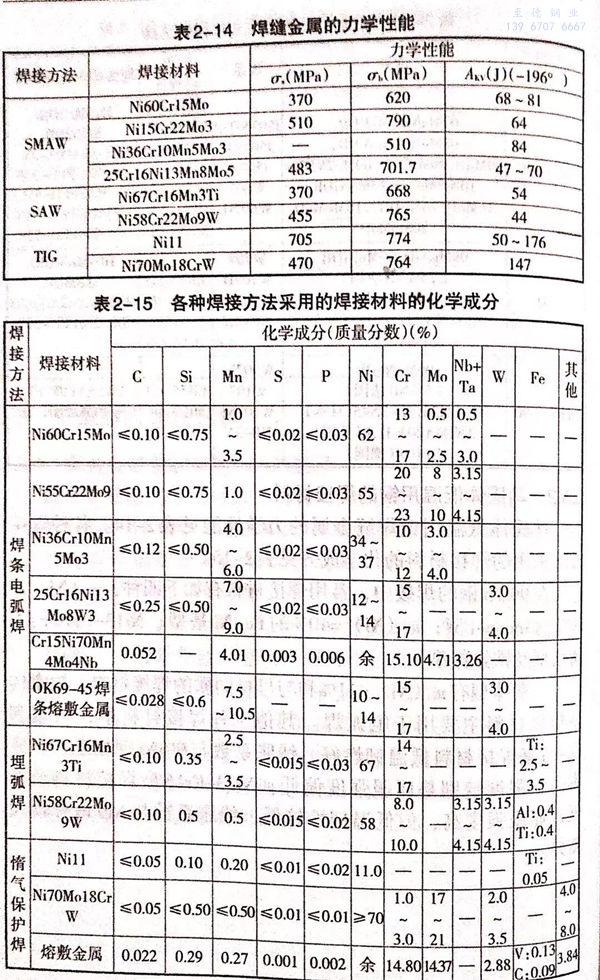 至德钢业
139 6707 6667
表2-14 焊缝金属的力学性能
焊接方法 焊接材料 力学性能
σs(MPa) σb(MPa) AKV(J)(-196° )
SMAW
Ni60Cr15Mo 370 620 68~81
Ni15Cr22Mo3 510 790 64
Ni36Cr10Mn5Mo3 — 510 84
25Cr16Ni13Mn8Mo5 483 701.7 47~70
SAW
Ni67Cr16Mn3Ti 370 668 54
Ni58Cr22Mo9W 455 765 44
TIG
Ni11 705 774 50~176
Ni70Mo18CrW 470 764 147
表2-15 各种焊接方法采用的焊接材料的化学成分
焊接方法 焊接材料 化学成分(质量分数)(%)
C Si Mn S P Ni Cr Mo Nb+Ta W Fe 其他
焊条电弧焊
Ni60Cr15Mo ≤0.10 ≤0.75 1.0~3.5 ≤0.02 ≤0.03 62 13~17 0.5~2.5 0.5~3.0 — — —
Ni55Cr22Mo9 ≤0.10 ≤0.75 1.0 ≤0.02 ≤0.03 55 20~23 8~10 3.15~4.15 — — —
Ni36Cr10Mn5Mo3 ≤0.12 ≤0.50 4.0~6.0 ≤0.02 ≤0.03 34~37 10~12 3.0~4.0 — — — —
25Cr16Ni13Mo8W3 ≤0.25 ≤0.50 7.0~9.0 ≤0.02 ≤0.03 12~14 15~17 — — 3.0~4.0 — —
Cr15Ni70Mn4Mo4Nb 0.052 — 4.01 0.003 0.006 余 15.10 4.71 3.26 — — —
OK69-45焊条熔敷金属 ≤0.028 ≤0.6 7.5~10.5 — — 10~14 15~17 — — 3.0~4.0 — —
埋弧焊
Ni67Cr16Mn3Ti ≤0.10 0.35 2.5~3.5 ≤0.015 ≤0.03 67 14~17 — — — Ti:2.5~3.5 —
Ni58Cr22Mo9W ≤0.10 0.5 0.5 ≤0.015 ≤0.02 58 8.0~10.0 — 3.15~4.15 3.15~4.15 Al:0.4 Ti:0.4 —
惰气保护焊
Ni11 ≤0.05 0.10 0.20 ≤0.01 ≤0.02 11.0 — — — — Ti:0.05 —
Ni70Mo18CrW ≤0.05 ≤0.50 ≤0.50 ≤0.01 ≤0.01 ≥70 1.0~3.0 17~21 — 2.0~3.5 — 4.0~8.0
熔敷金属 0.022 0.29 0.27 0.001 0.002 余 14.80 14.37 — 2.88 V:0.13 C:0.09 3.84